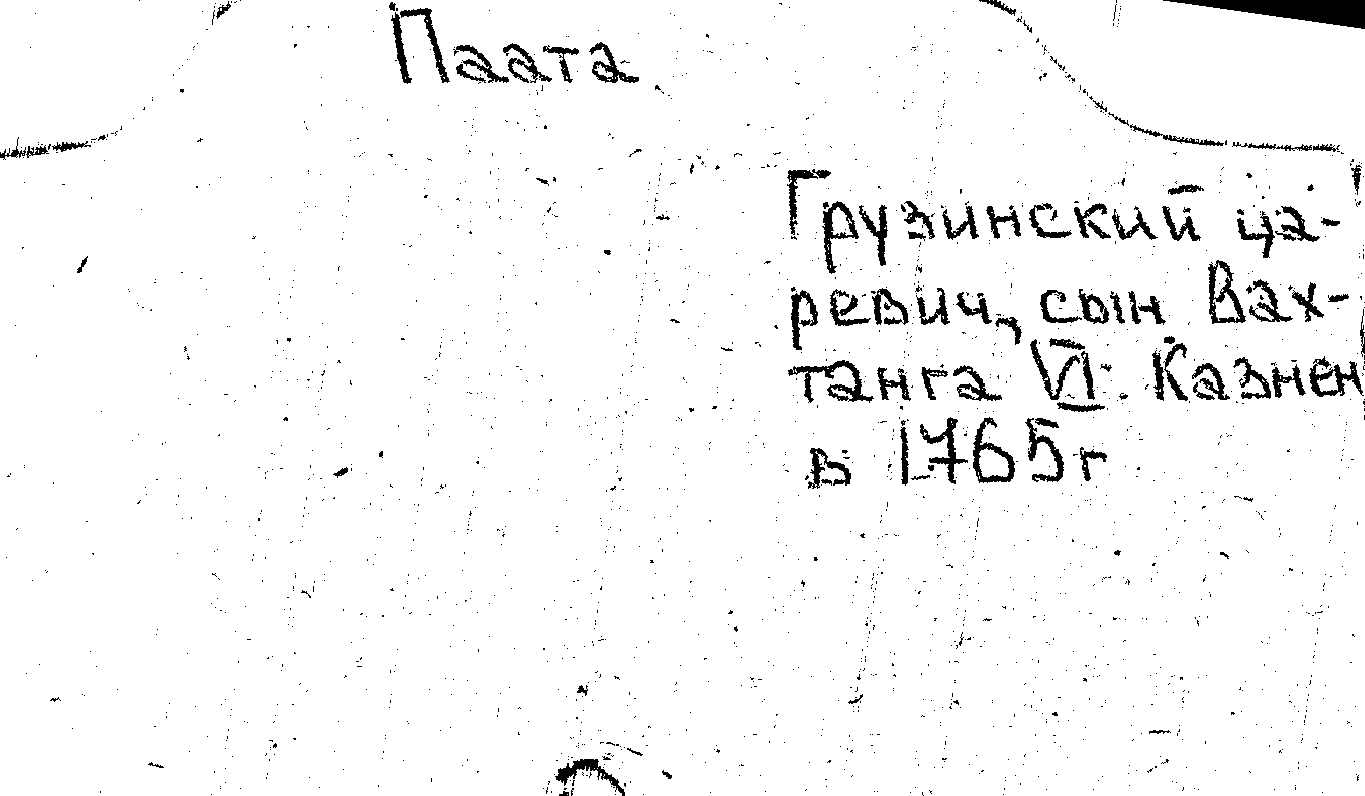 Паата
Грузинский ца-
ревич, сын Вах-
танга VI. Казнен
в 1765г